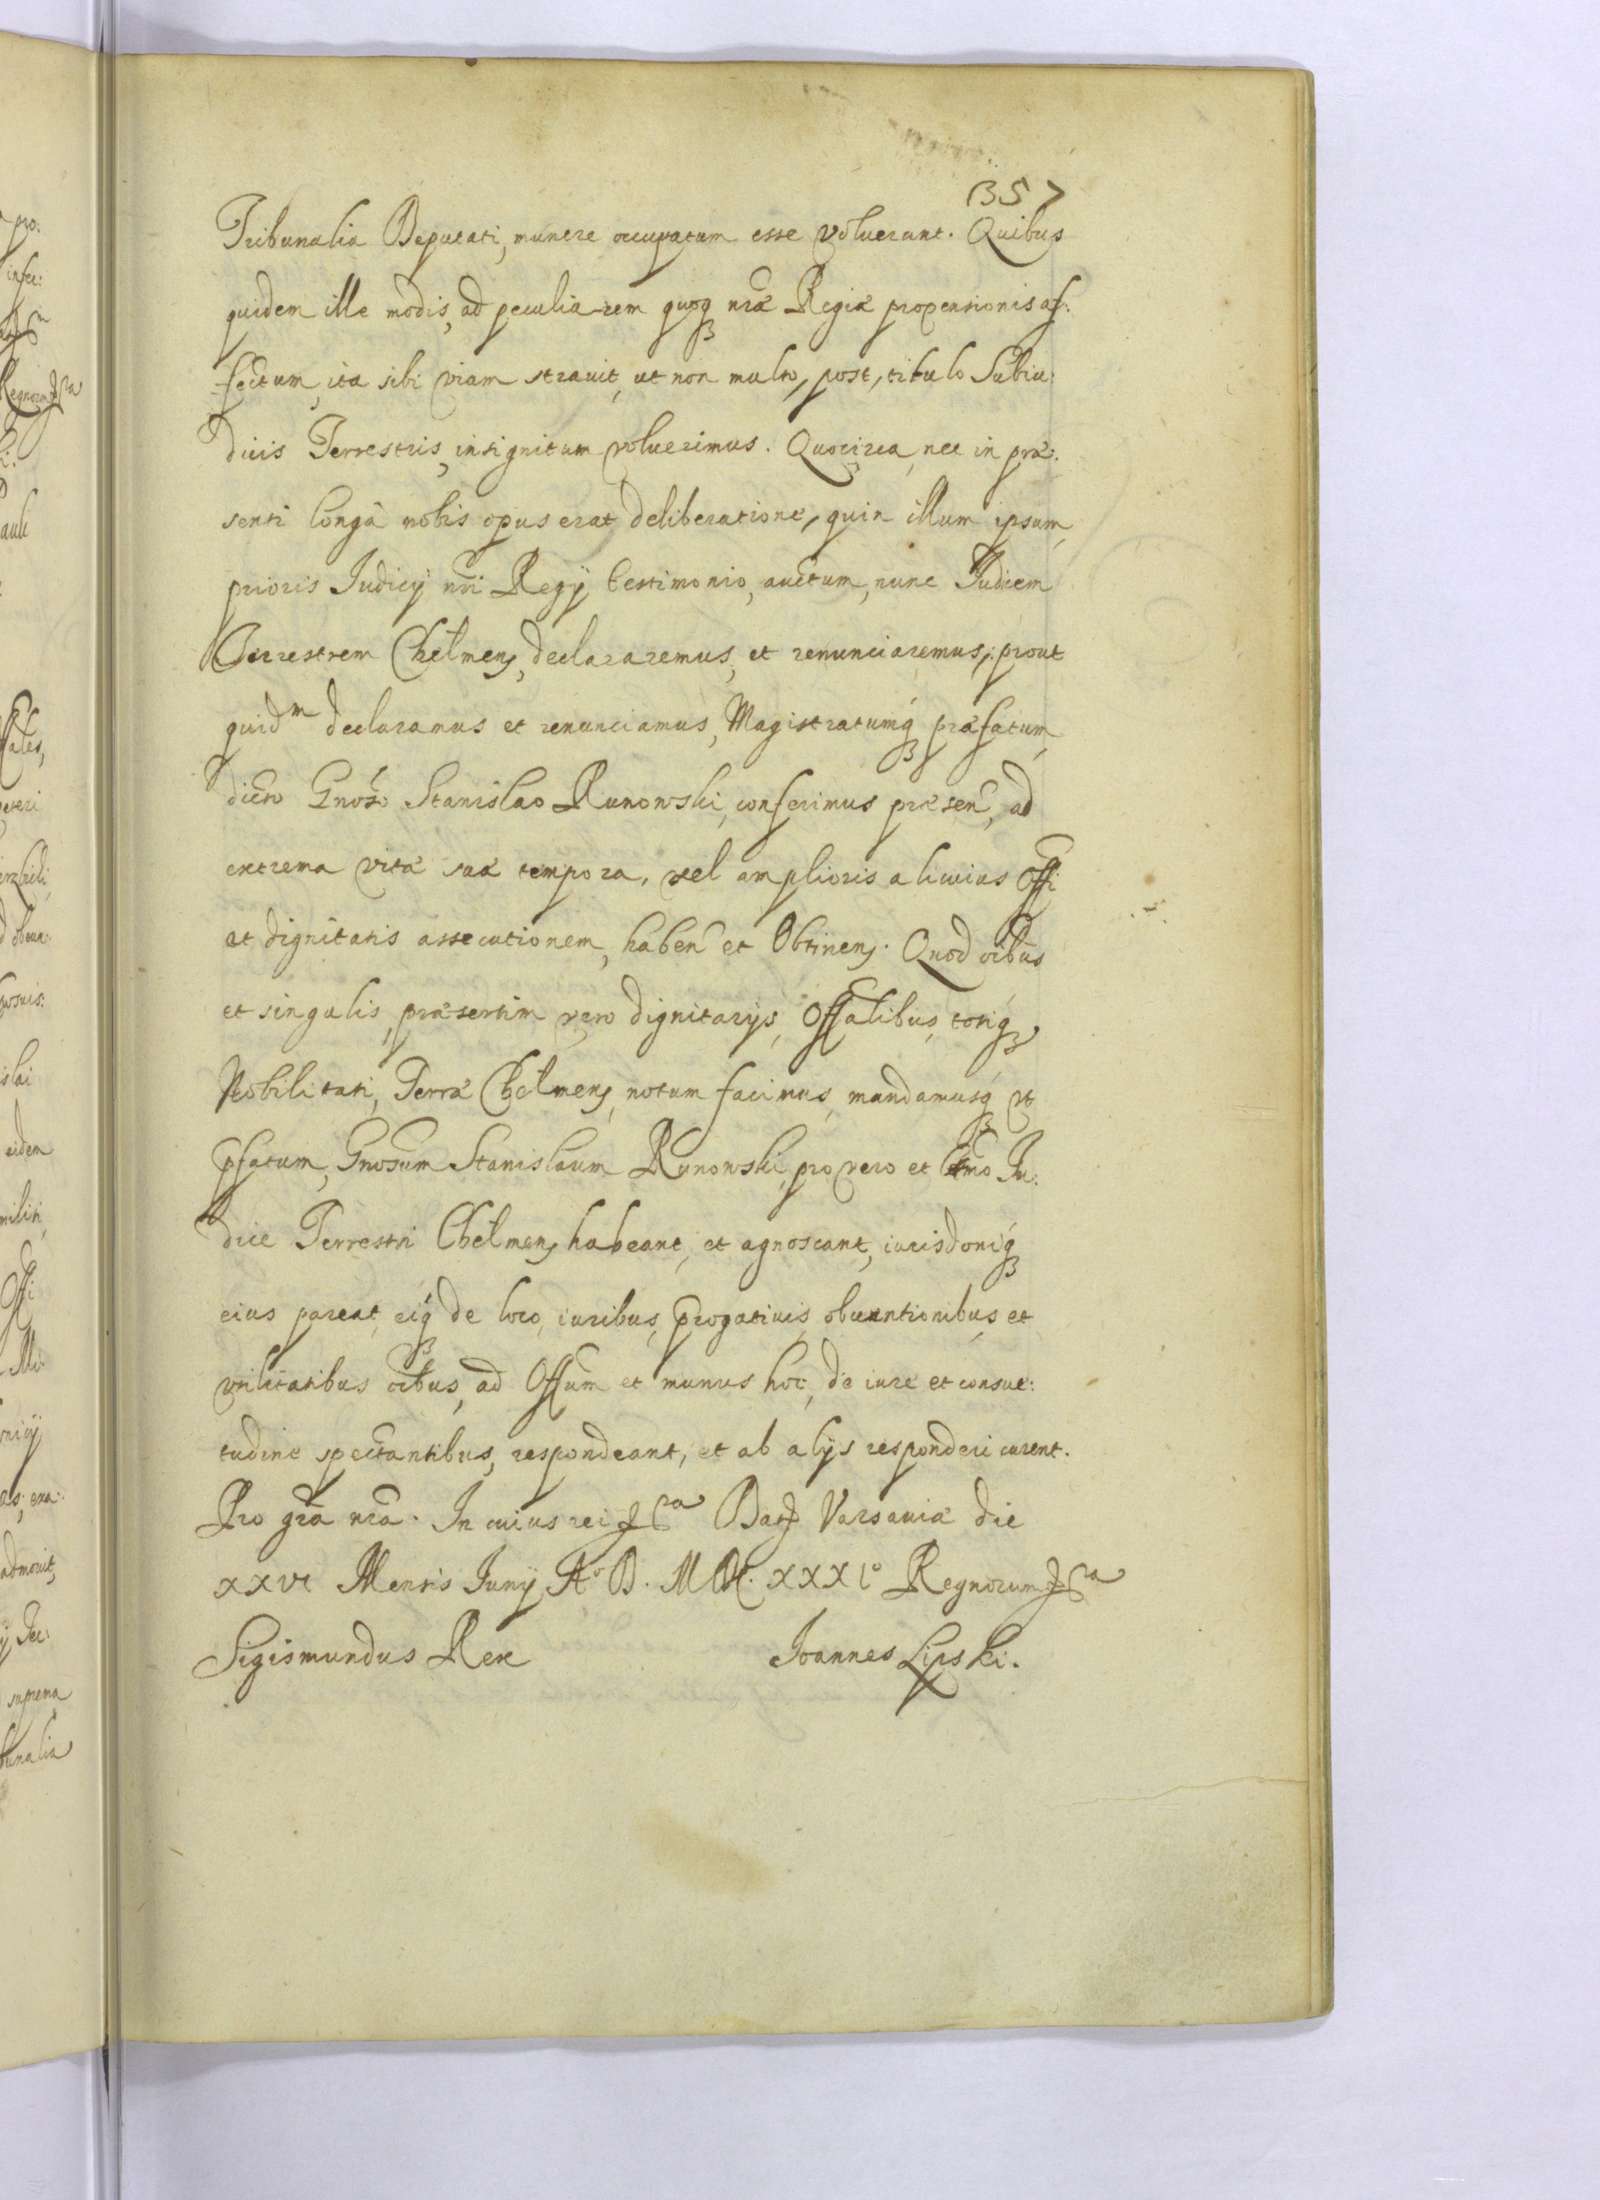 357
Tribunalia Deputati, munere occupatum esse voluerunt. Quibus
quidem ille modis, ad peculiarem quoq nrae Regiae propensionis af:
fectum, ita sibi viam stravit, ut non multo, post, titulo Subiu:
dicis Terrestris, insignitum voluerimus. Quocirca, nec in prae:
senti longâ nobis opus erat deliberatione, quin illum ipsum,
prioris Judicÿ nri Regÿ testimonio, auctum, nunc Judicem
Terrestrem Chelmens, declararemus, et renunciaremus, prout
quidm declaramus et renunciamus, Magistratumq praefatum,
dicto Gnoso Stanislao Runowski, conferimus praesen, ad
extrema vitae suae tempora, vel amplioris alicuius Offi
et dignitatis assecutionem, haben et Obtinens. Quod oibus
et singulis, praesertim vero dignitarÿs, Offalibus, totiq
Nobilitati, Terrae Chelmens, notum facimus, mandamusq ut
pfatum, Gnosum Stanislaum Runowski, pro vero et ltmo Iu:
dice Terrestri Chelmens habeant, et agnoscant, iurisdoniq
eius pareat, eiq de loco, iuribus, progativis, obventionibus, et
utilitatibus oibus, ad Offum et munus hoc, de iure et consue:
tudine spectantibus, respondeant, et ab alÿs responderi curent.
Pro gra nra. In cuius rei &ca Dat Varsaviae die
XXVI Mensis Junÿ Ao D. MDC. XXXIo Regnorum &ca
Sigismundus Rex Joannes Lipski.